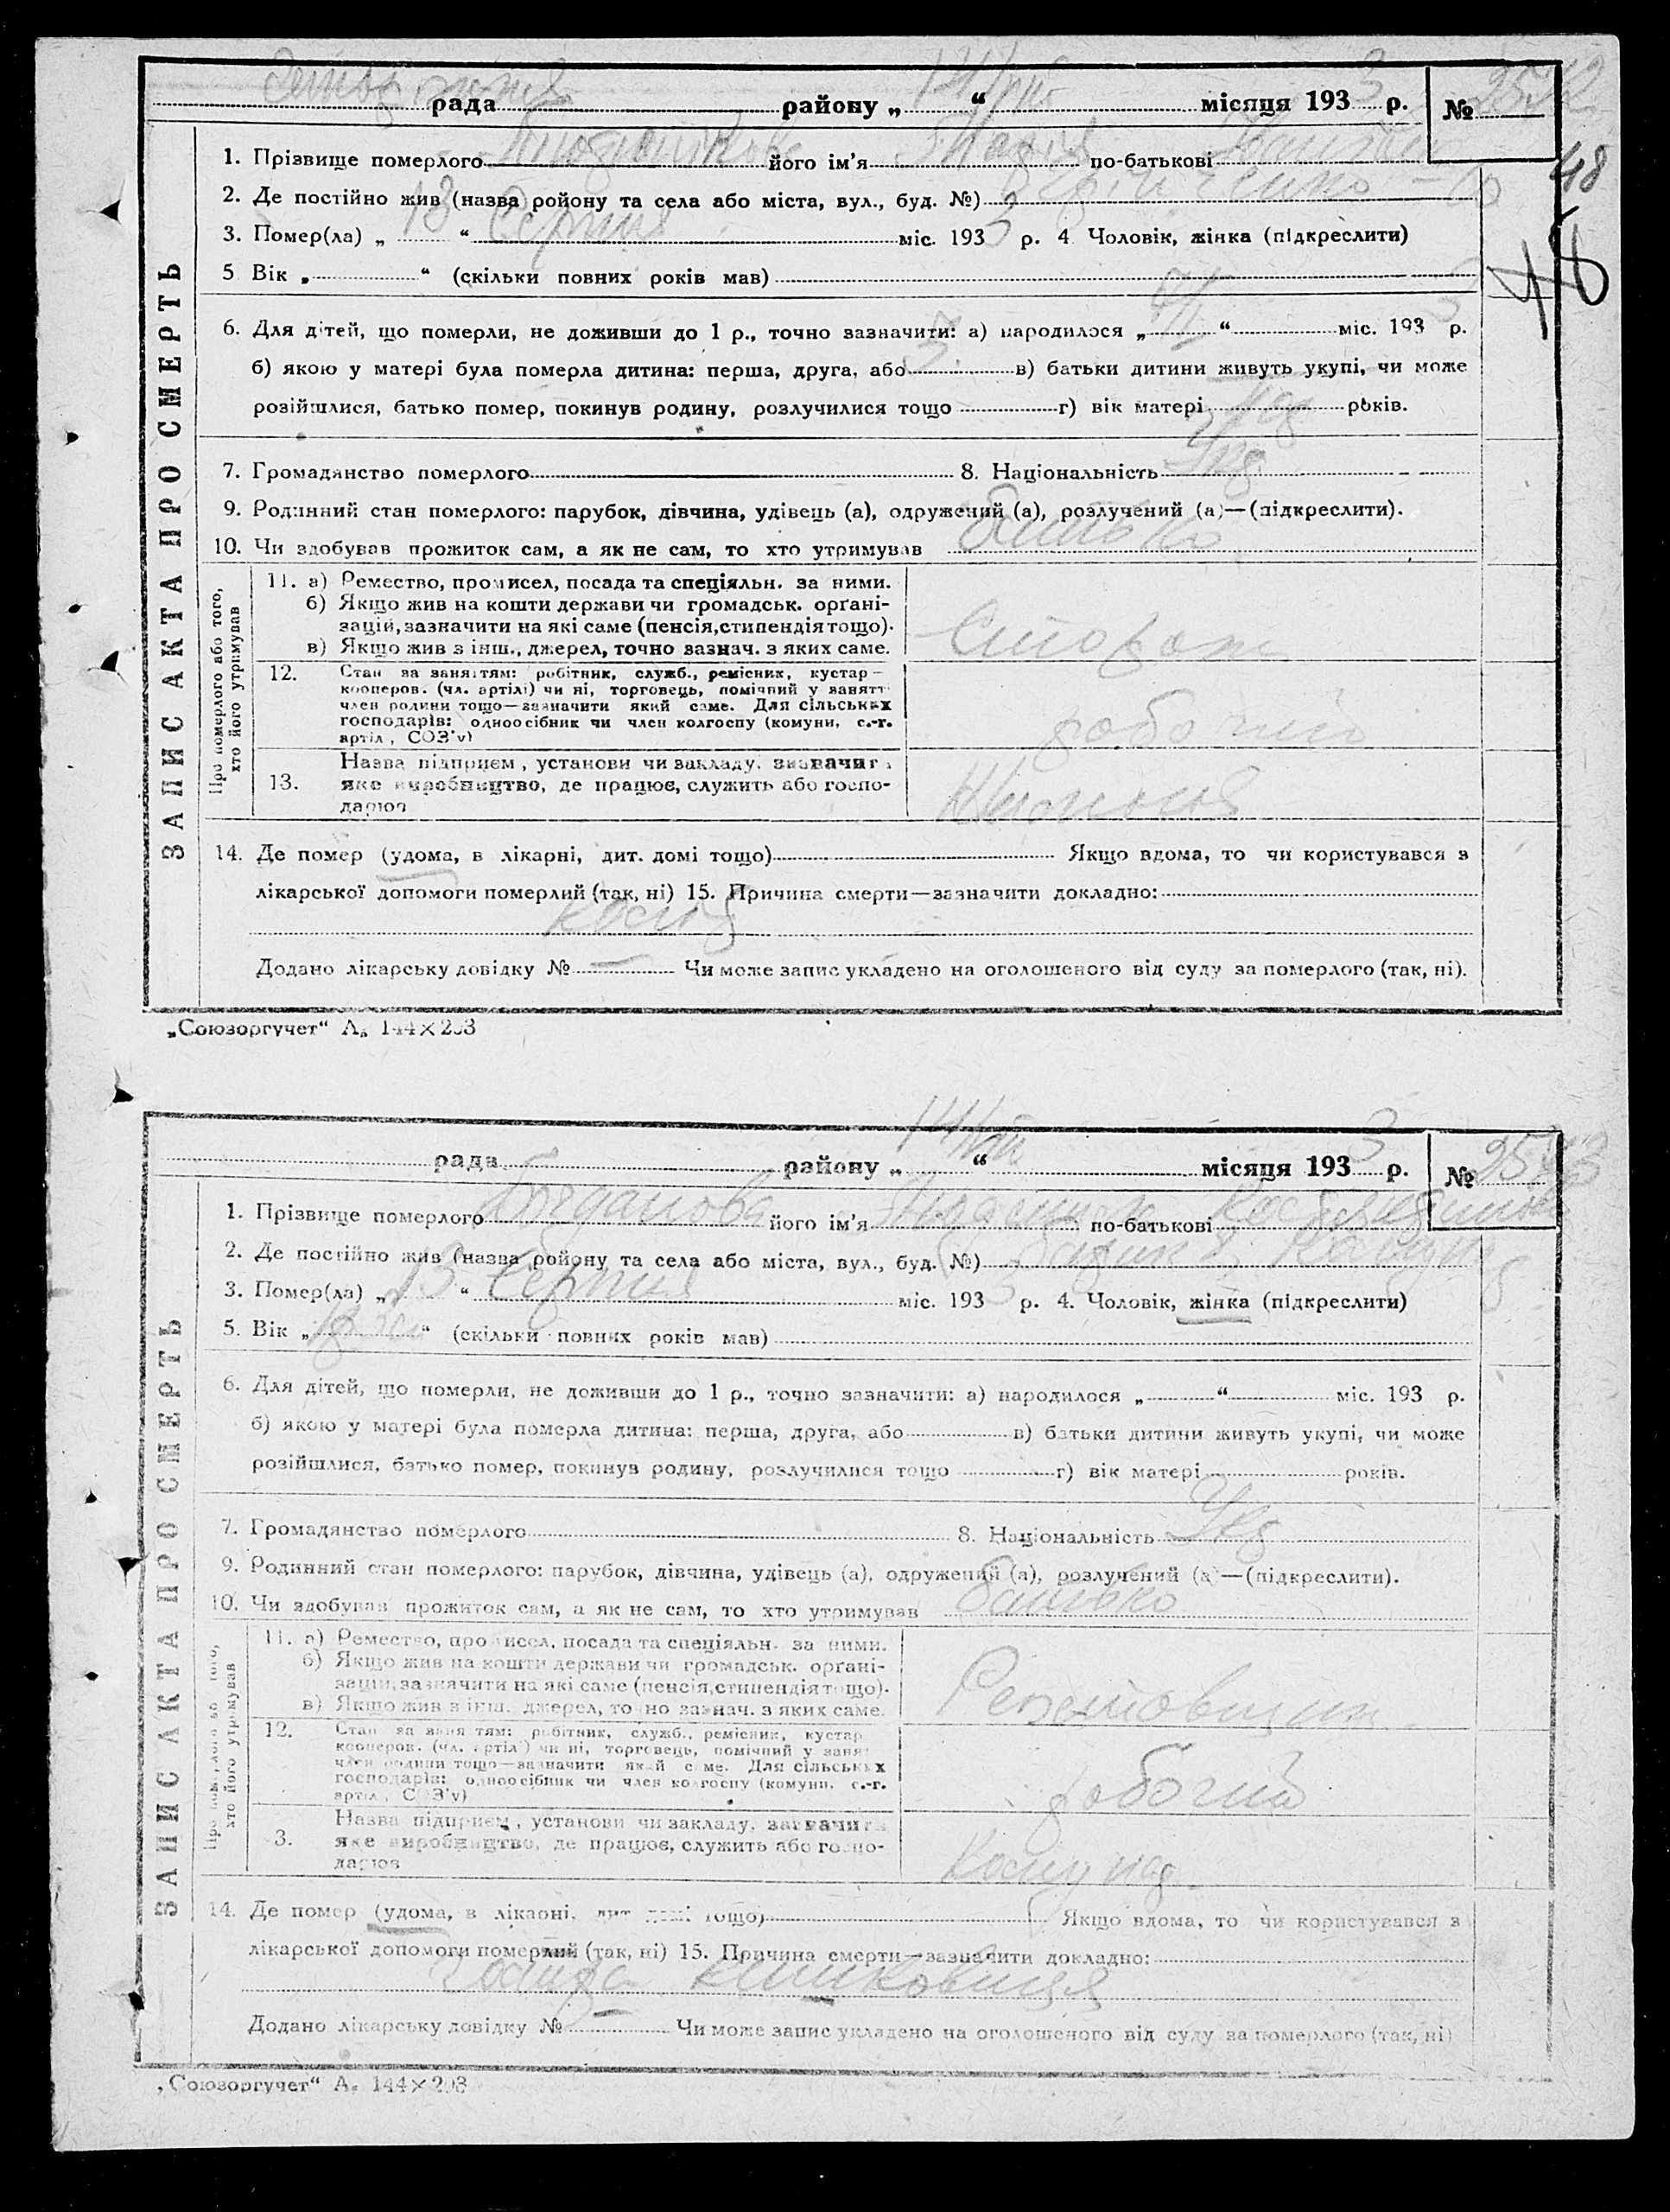 рада района „ 14/VIII “ місяця 193 3 р. № 2572
48
1. Прізвище померлого його ім'я Марія по-батькові
2. Де постійно жив (назва ройону та села або міста, вул., буд. №)
3. Помер(ла) „ 13 “ Серпня міс. 193 3 р. 4 Чоловік, жінка (підкреслити)
48
5 Вік „ “ (скільки повних років мав)
6. Для дітей, що померли, не доживши до 1 р., точно зазначити: а) народилося „ “ міс. 193 3 р.
б) якою у матері була померла дитина: перша, друга, або 3. в) батьки дитини живуть укупі, чи може
розійшлися, батько помер, покинув родину, розлучилися тощо г) вік матері років.
7. Громадянство померлого 8. Національність Укр
9. Родинний стан померлого: парубок, дівчина, удівець (а), одружений (а), розлучений (а)—(підкреслити).
10. Чи здобував прожиток сам, а як не сам, то хто утримував батько
ЗАПИС АКТА ПРО СМЕРТЬ
Про померлого або того,
хто його утримував
11. а) Ремество, промисел, посада та спеціяльн. за ними.
б) Якщо жив на кошти держави чи громадськ. орґані-
зацій, зазначити на які саме (пенсія, стипендія тощо).
в) Якщо жив з інш., джерел, точно зазнач. з яких саме.
Сторож
12. Стан за заняттям: робітник, служб., ремісник, кустар—
кооперов. (чл. артілі) чи ні, торговець, помічний у занятт
член родини тощо—зазначити який саме. Для сільських
господарів: одноосібник чи член колгоспу (комуни, с.-г.
артіл, СОЗ'у)
робочий
13. Назва підприєм, установи чи закладу, зазначити
яке виробництво, де працює, служить або госпо-
дарює
14. Де помер (удома, в лікарні, дит. домі тощо) Якщо вдома, то чи користувався з
лікарської допомоги померлий (так, ні) 15. Причина смерти—зазначити докладно:
Додано лікарську довідку № — Чи може запис укладено на оголошеного від суду за померлого (так, ні).
„Союзоргучет“ А₅ 144×203
рада району „ 14/VIII “ місяця 193 3 р. № 2573
1. Прізвище померлого Богданова його ім'я по-батькові
2. Де постійно жив (назва ройону та села або міста, вул., буд. №)
3. Помер(ла) „ 13 “ Серпня міс. 193 3 р. 4. Чоловік, жінка (підкреслити)
5. Вік „ “ (скільки повних років мав)
6. Для дітей, що померли, не доживши до 1 р., точно зазначити: а) народилося „ “ міс. 193 р.
б) якою у матері була померла дитина: перша, друга, або в) батьки дитини живуть укупі, чи може
розійшлися, батько помер, покинув родину, розлучилися тощо г) вік матері років.
7. Громадянство померлого 8. Національність Укр
9. Родинний стан померлого: парубок, дівчина, удівець (а), одружений (а), розлучений (а)—(підкреслити).
10. Чи здобував прожиток сам, а як не сам, то хто утримував батько
ЗАПИС АКТА ПРО СМЕРТЬ
Про померлого або того,
хто його утримував
11. а) Ремество, промисел, посада та спеціяльн. за ними.
б) Якщо жив на кошти держави чи громадськ. орґані-
зацій, зазначити на які саме (пенсія, стипендія тощо).
в) Якщо жив з інш. джерел, точно зазнач. з яких саме.
12. Стан за заняттям: робітник, служб., ремісник, кустар
кооперов. (чл. артілі) чи ні, торговець, помічний у занят
член родини тощо—зазначити який саме. Для сільських
господарів: одноосібник чи член колгоспу (комуни, с.-г.
артіл, СОЗ'у)
робочий
3. Назва підприєм, установи чи закладу, зазначити
яке виробництво, де працює, служить або госпо-
дарює
14. Де помер (удома, в лікарні, дит домі тощо) Якщо вдома, то чи користувався з
лікарської допомоги померлий (так, ні) 15. Причина смерти—зазначити докладно:
Додано лікарську довідку № — Чи може запис укладено на оголошеного від суду за померлого (так, ні)
„Союзоргучет“ А₅ 144×203